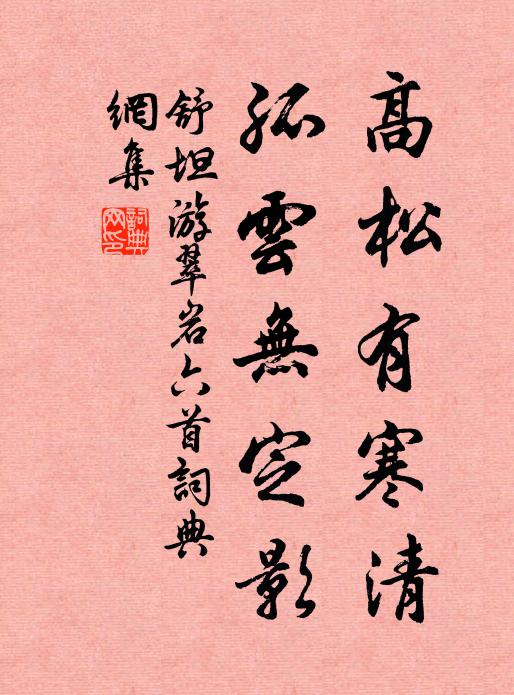 高松有寒清
孤雲無定影
舒坦游翠岩六首詞典
網集
詞典
网印